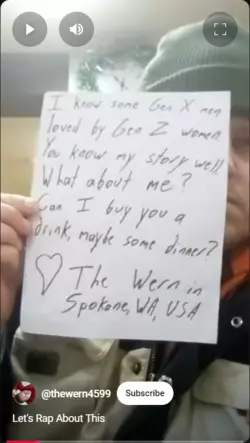 I know some Gen X men
loved by Gen Z women.
You know my story well.
What about me?
Can I buy you a
drink, maybe some dinner?
♡ The Wern in
Spokane, WA, USA
@thewern4599 Subscribe
Let's Rap About This